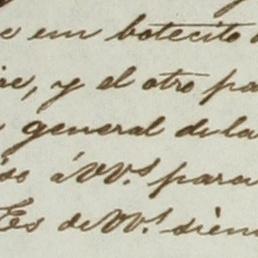 e em botecito
ie, y el otro pa
general de la
iso á VV.s para
Es de VV.s siem